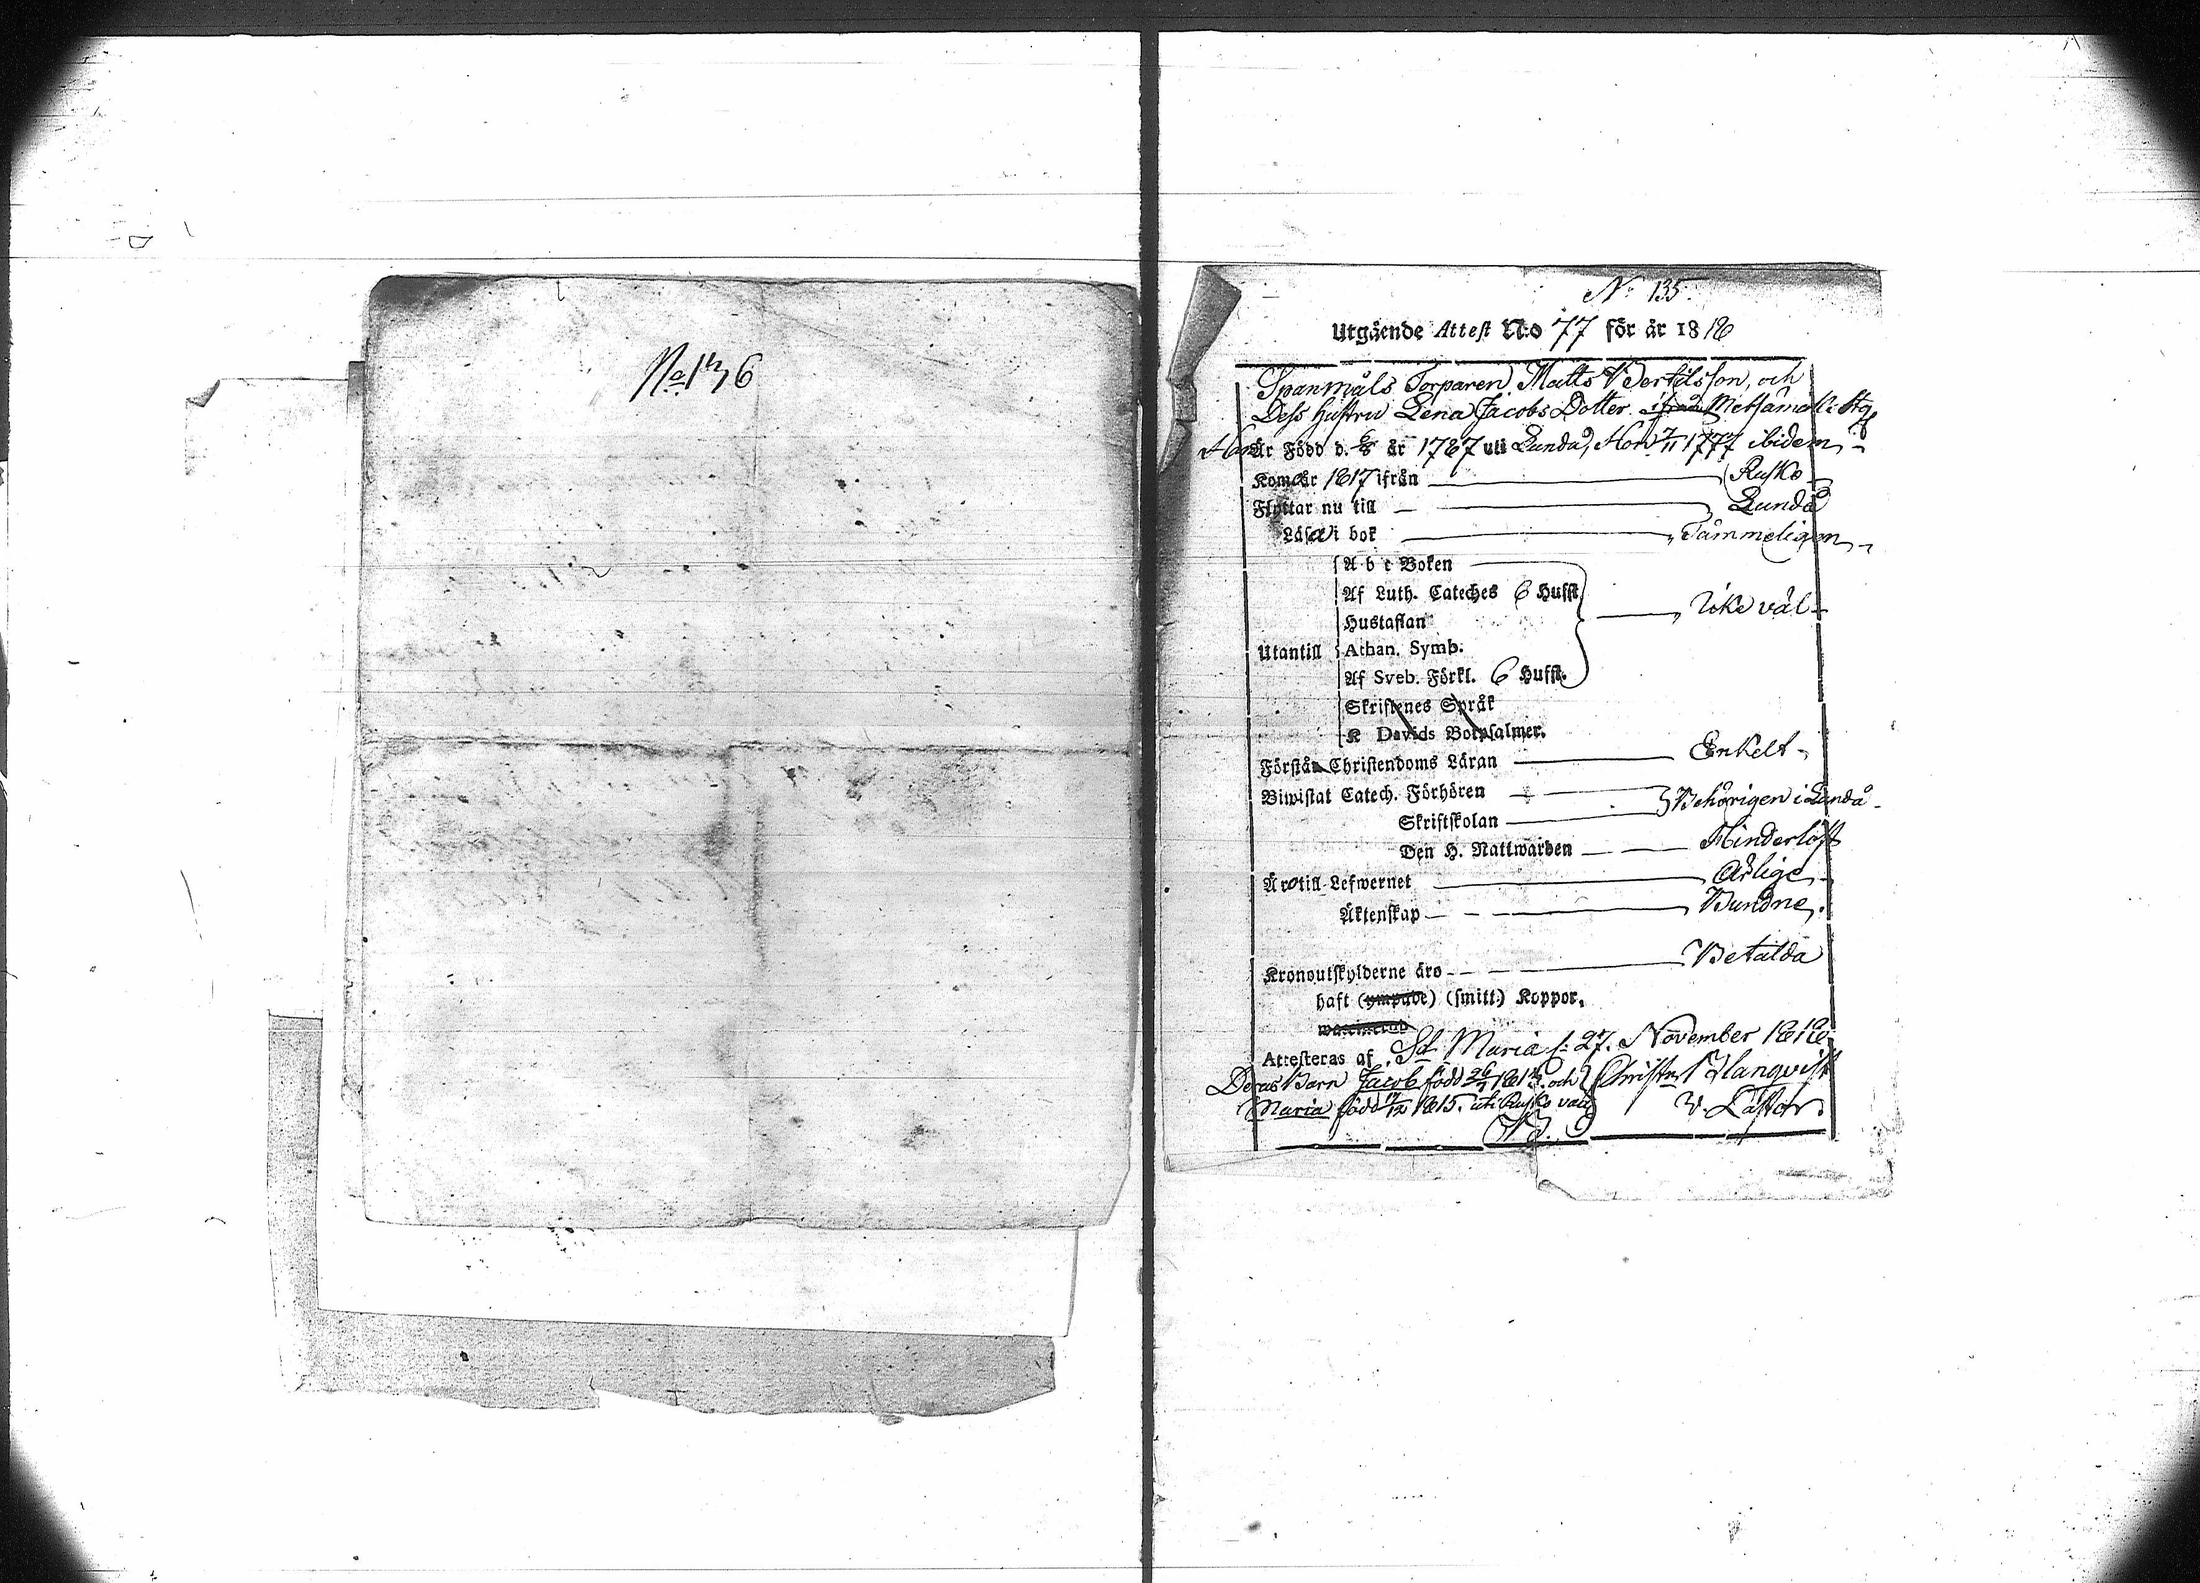 No 136
No 135.
Utgående Attest No 77 för år 1818
Spanmåls Torparen Matts Bertilsson, och
Dess hustru Lena Jacobs Dotter
Han Är Född d. år 1787 uti Lunda, Hon 7/11 1777 ibidem
Kom år 1817 ifrån Rusko
Flyttar nu till Lunda
Läsa i bok Tämmeligen
A b c Boken
Af Luth. Cateches 6 Hufst. Icke väl
Hustaflan
Utantill Athan. Symb.
Af Sveb. Förkl. 6 Hufst.
Skriftenes Språk
K Davids Botpsalmer.
Förstå Christendoms Läran Enkelt
Biwistat Catech. Förhören Behörigen i Lunda
Skriftskolan
Den H. Nattwarden
Äro till Lefwernet Ärlige
Äktenskap Bundne.
Kronoutskylderne äro Betalda
haft (ympade) (smitt.) Koppor,
Attesteras af, Sd. Maria d. 27. November 1818
Deras Barn Jacob född och
Maria född 1815. uti Rusko
v. Pastor